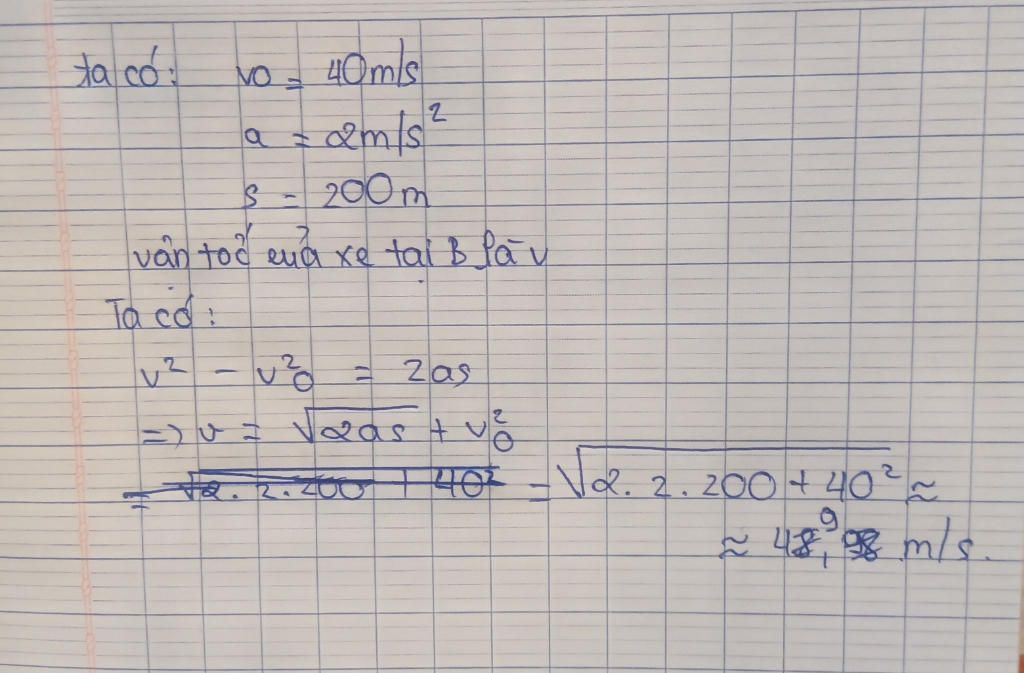 ta có: v0 = 40m/s
a = 2m/s²
s = 200m
vận tốc của xe tại B là v
Ta có:
v² - v²0 = 2as
=> v = √2as + v²0
= √2. 2. 200 + 40² = √2. 2. 200 + 40² ≈
≈ 49, m/s.